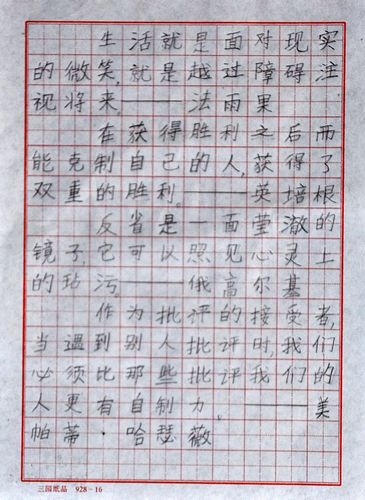 生活就是面对现实
的微笑,就是越过障碍注
视将来。——法雨果
在获得胜利之后而
能克制自己的人,获得了
双重的胜利。——英培根
反省是一面莹澈的
镜子,它可以照见心灵上
的玷污。——俄高尔基
作为批评的接受者,
当遇到别人批评时,我们
必须比那些批评我们的
人更有自制力。——美
帕蒂·哈瑟薇
三园纸品 928-16